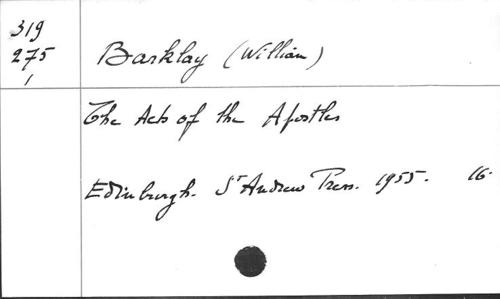 319
275
1
Barklay (William)
The Acts of the Apostles
Edinburgh. St Andrew Press. 1955. 16.